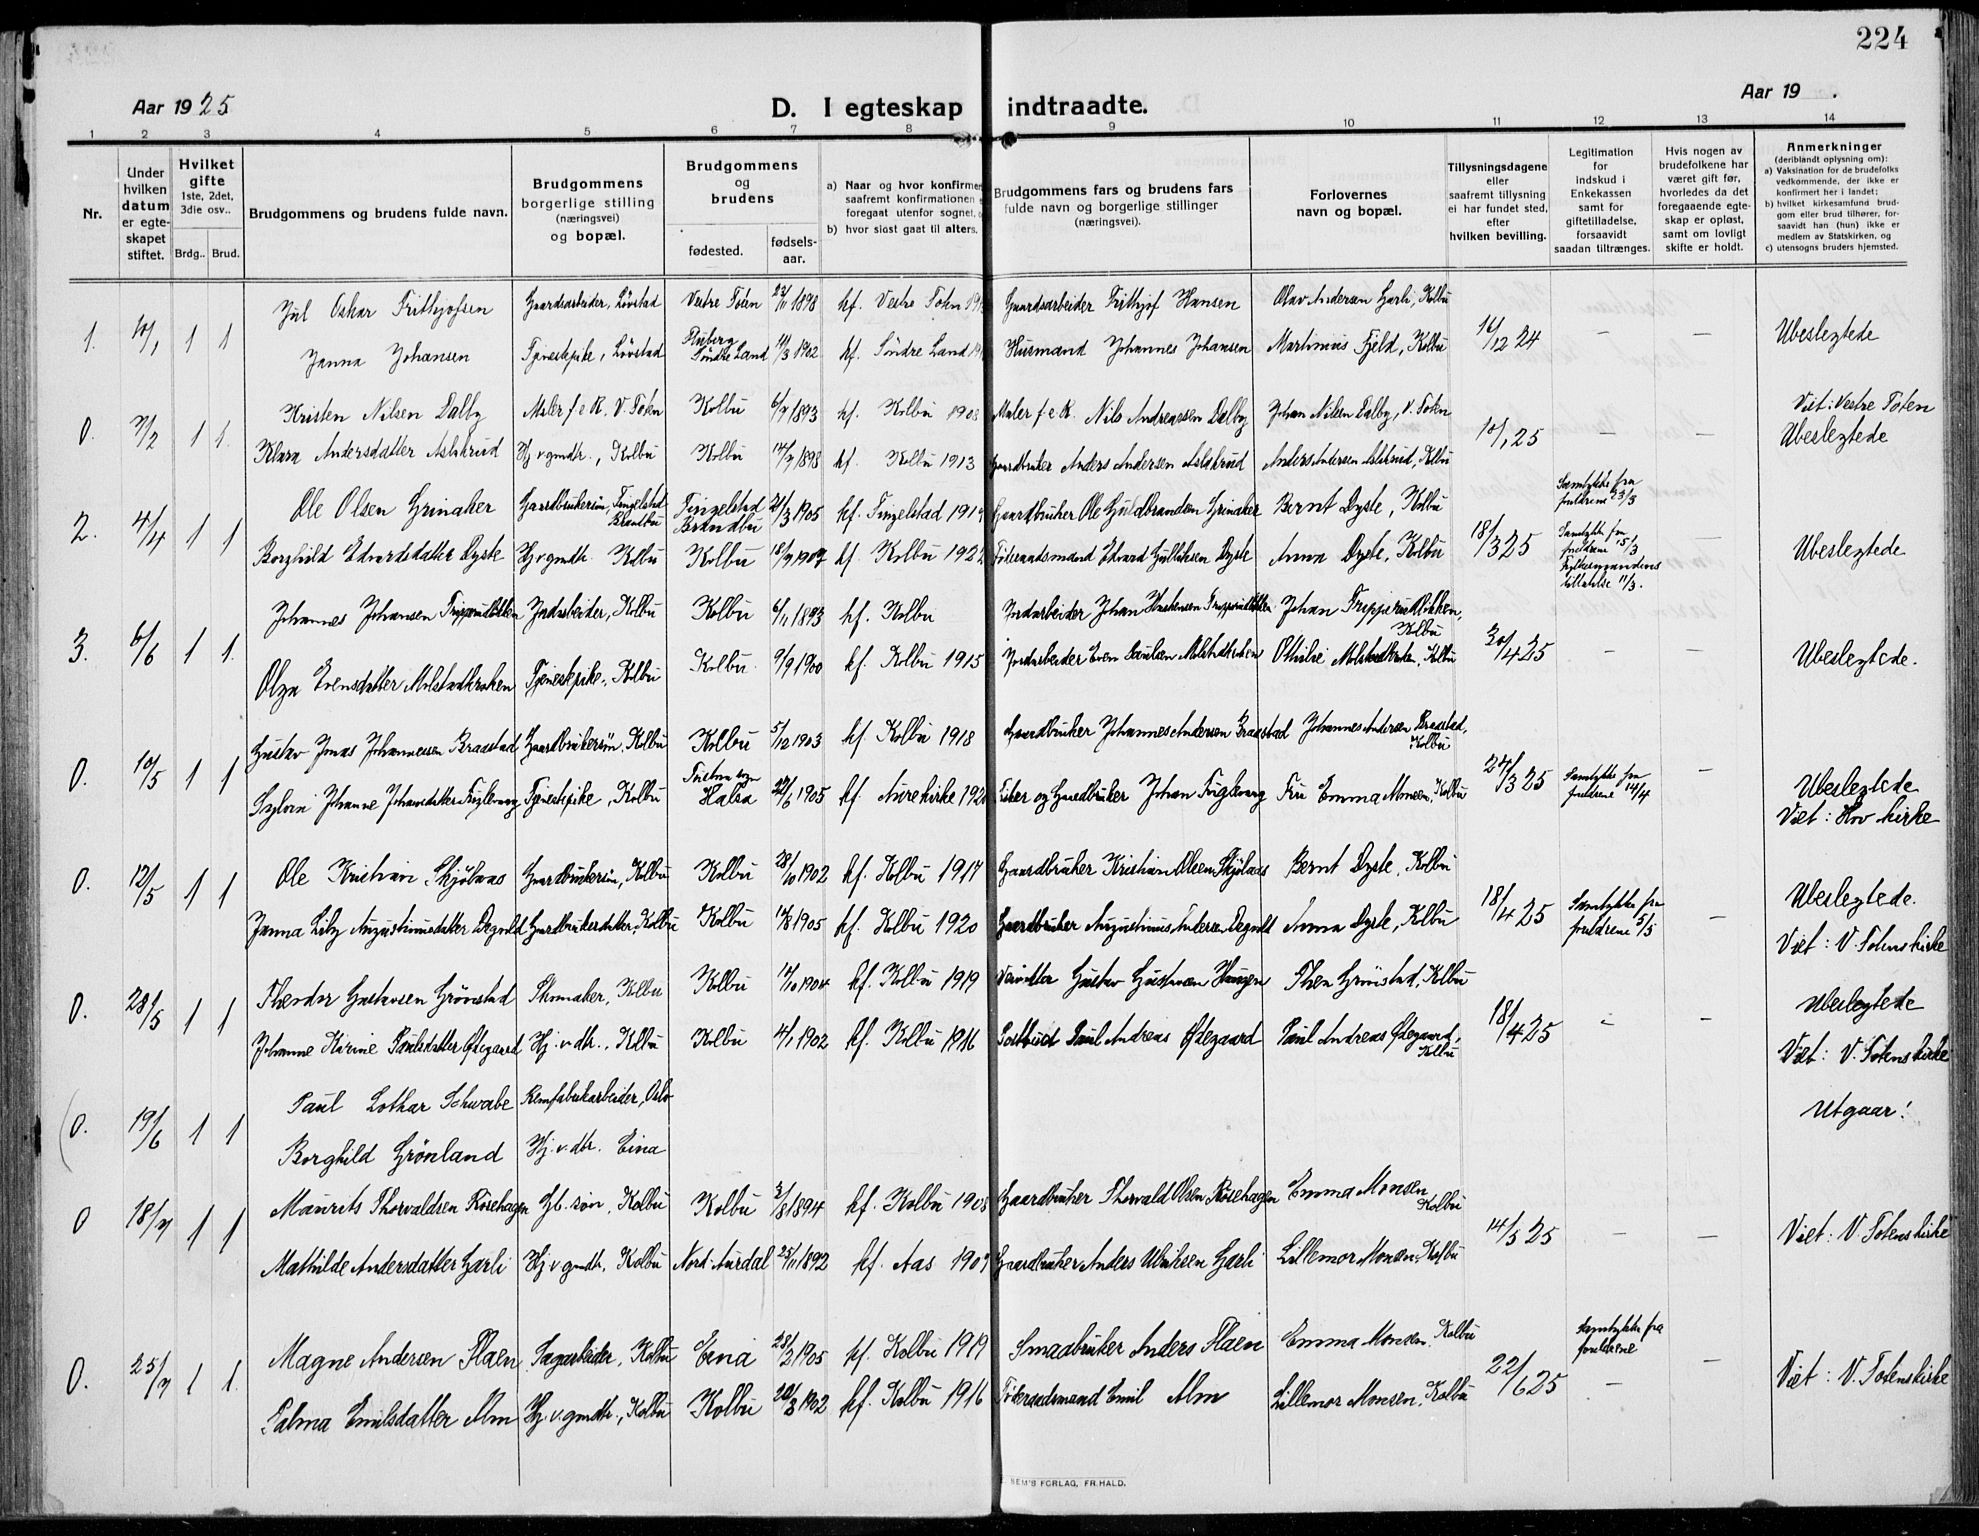 224
Aar 1925
D. I egteskap indtraadte.
Aar 19 .
1 2 3 4 5 6 7 8 9 10 11 12 13 14
Nr.
Under hvilken datum er egte-skapet stiftet.
Hvilket gifte 1ste, 2det, 3die osv..
Brdg.. Brud.
Brudgommens og brudens fulde navn.
Brudgommens borgerlige stilling (næringsvei) og bopæl.
Brudgommens og brudens
fødested. fødsels-aar.
a) Naar og hvor konfirmer
saafremt konfirmationen
foregaat utenfor sognet,
b) hvor sidst gaat til alters.
Brudgommens fars og brudens fars
fulde navn og borgerlige stillinger
(næringsvei).
Forlovernes
navn og bopæl.
Tillysningsdagene
eller
saafremt tillysning
ei har fundet sted,
efter
hvilken bevilling.
Legitimation
for
indskud i
Enkekassen
samt for
giftetilladelse,
forsaavidt
saadan tiltrænges.
Hvis nogen av
brudefolkene har
været gift før,
hvorledes da det
foregaaende egte-
skap er opløst,
samt om lovligt
skifte er holdt.
Anmerkninger
(deriblandt oplysning om):
a) Vaksination for de brudefolks
vedkommende, der ikke er
konfirmert her i landet;
b) hvilket kirkesamfund brud-
gom eller brud tilhører, for-
saavidt han (hun) ikke er
medlem av Statskirken, og
c) utensogns bruders hjemsted.
1. 10/1 1 1 Jul Oskar Frithjofsen Gaardsarbeider, Løvstad Vestre Toten 1898 kf. Vestre Toten Gaardsarbeider Frithjof Hansen Olav Andersen Garli, Kolbu
Janna Johansen Tjenestepike, Løvstad Søndre Land 11/3 1902 kf. Søndre Land Husmand Johannes Johansen Martinius Fjeld, Kolbu 16/12 24 — — Ubeslegtede
0. 7/2 1 1. Kristen Nilsen Dalby Maler f e R. V. Toten Kolbu 6/7 1893 kf. Kolbu 1908 Maler f e R. Nils Andreassen Dalby Johan Nilsen Dalby, V. Toten Viet: Vestre Toten
Klara Andersdatter Aslakrud Hj v gmdtr., Kolbu Kolbu 14/7 1898 kf. Kolbu 1913 Gaardbruker Anders Andersen Aslakrud Anders Andersen Aslakrud, Kolbu 10/1 25 — — Ubeslegtede
2. 4/4 1 1 Ole Olsen Grinaker Gaardbrukersøn, Tingelstad Brandbu Tingelstad Brandbu 21/3 1905 kf. Tingelstad 1919 Gaardbruker Ole Guldbrandsen Grinaker Bernt Dyste, Kolbu Samtykke fra foreldrene 23/3
Borghild Edvardsdatter Dyste Hj v gmdtr. Kolbu Kolbu 18/7 1907 kf. Kolbu 1922 Føderaadsmand Edvard Gulliksen Dyste Anna Dyste, Kolbu 18/3 25 Samtykke fra foreldrene 15/3 Fylkesmandens tilladelse 11/3. — Ubeslegtede
3. 6/6 1 1. Johannes Johansen Jordarbeider, Kolbu Kolbu 6/11 1893 kf. Kolbu Jordarbeider Johan Johan Kolbu
Olga Evensdatter Molstadkroken Tjenestepike, Kolbu Kolbu 9/9 1900 kf. Kolbu 1915 Jordarbeider Even Paulsen Molstadkroken Othilie Molstadkroken, Kolbu 30/4 25 — — Ubeslegtede.
0. 10/5 1 1 Gustav Jonas Johannessen Braastad Gaardbrukersøn, Kolbu Kolbu 5/12 1903 kf. Kolbu 1918 Gaardbruker Johannes Andersen Braastad Johannes Andersen Braastad, Kolbu
Johanne Tjenestepike, Kolbu Halsa 1905 kf. Aure kirke 1920 Fisker og Gaardbruker Johan Fru Emma Monsen, Kolbu 27/3 25 Samtykke fra foreldrene 14/4 — Ubeslegtede
Viet: Hov kirke
0. 12/5 1 1 Ole Kristian Skjølaas Gaardbrukersøn, Kolbu Kolbu 28/10 1902 kf. Kolbu 1917 Gaardbruker Kristian Olsen Skjølaas Bernt Dyste, Kolbu
Janna Lily Augustinusdatter Degvold Gaardbrukerdatter, Kolbu Kolbu 1905 kf. Kolbu 1920 Gaardbruker Augustinus Andersen Degvold Anna Dyste, Kolbu 18/4 25 Samtykke fra foreldrene 5/5 — Ubeslegtede.
Viet: V. Totens kirke
0. 28/5 1 1 Theodor Gustavsen Grønstad Skomaker, Kolbu Kolbu 1904 kf. Kolbu 1919 Gustav Gustavsen Haugen Theo Grønstad, Kolbu Ubeslegtede
Johanne Karine Paulsdatter Ødegaard Hj. v. dtr., Kolbu Kolbu 4/1 1902 kf. Kolbu 1916 Postbud Paul Andreas Ødegaard Paul Andreas Ødegaard, Kolbu 18/4 25 — — Viet: V. Totens kirke
(0. 19/6 1 1 Paul Lothar Schwabe Remfabrikarbeider, Oslo Utgaar!
Borghild Grønland Hj. v. dtr. Eina
0 18/7 1 1 Maurits Thorvaldsen Rosehagen Gb. søn, Kolbu Kolbu 3/8 1894 kf. Kolbu 1908 Gaardbruker Thorvald Olsen Rosehagen Emma Monsen Kolbu
Mathilde Andersdatter Garli Hj v gmdtr, Kolbu Nord-Aurdal 25/11 1892 kf. Aas 1907 Gaardbruker Anders Ulriksen Garli Lillemor Monsen, Kolbu 14/5 25 — — Viet: V. Totens kirke
0. 25/7 1 1. Magne Andersen Flaen Sagarbeider, Kolbu Eina 28/2 1905 kf. Kolbu 1919 Smaabruker Anders Flaen Emma Monsen, Kolbu Samtykke fra foreldrene
Palma Emilsdatter Alm Hj. v. gmdtr., Kolbu Kolbu 1902 kf. Kolbu 1916 Føderaadsmand Emil Alm Lillemor Monsen, Kolbu 22/6 25 — — Viet: V. Totens kirke
SEM'S FORLAG, FR. HALD.